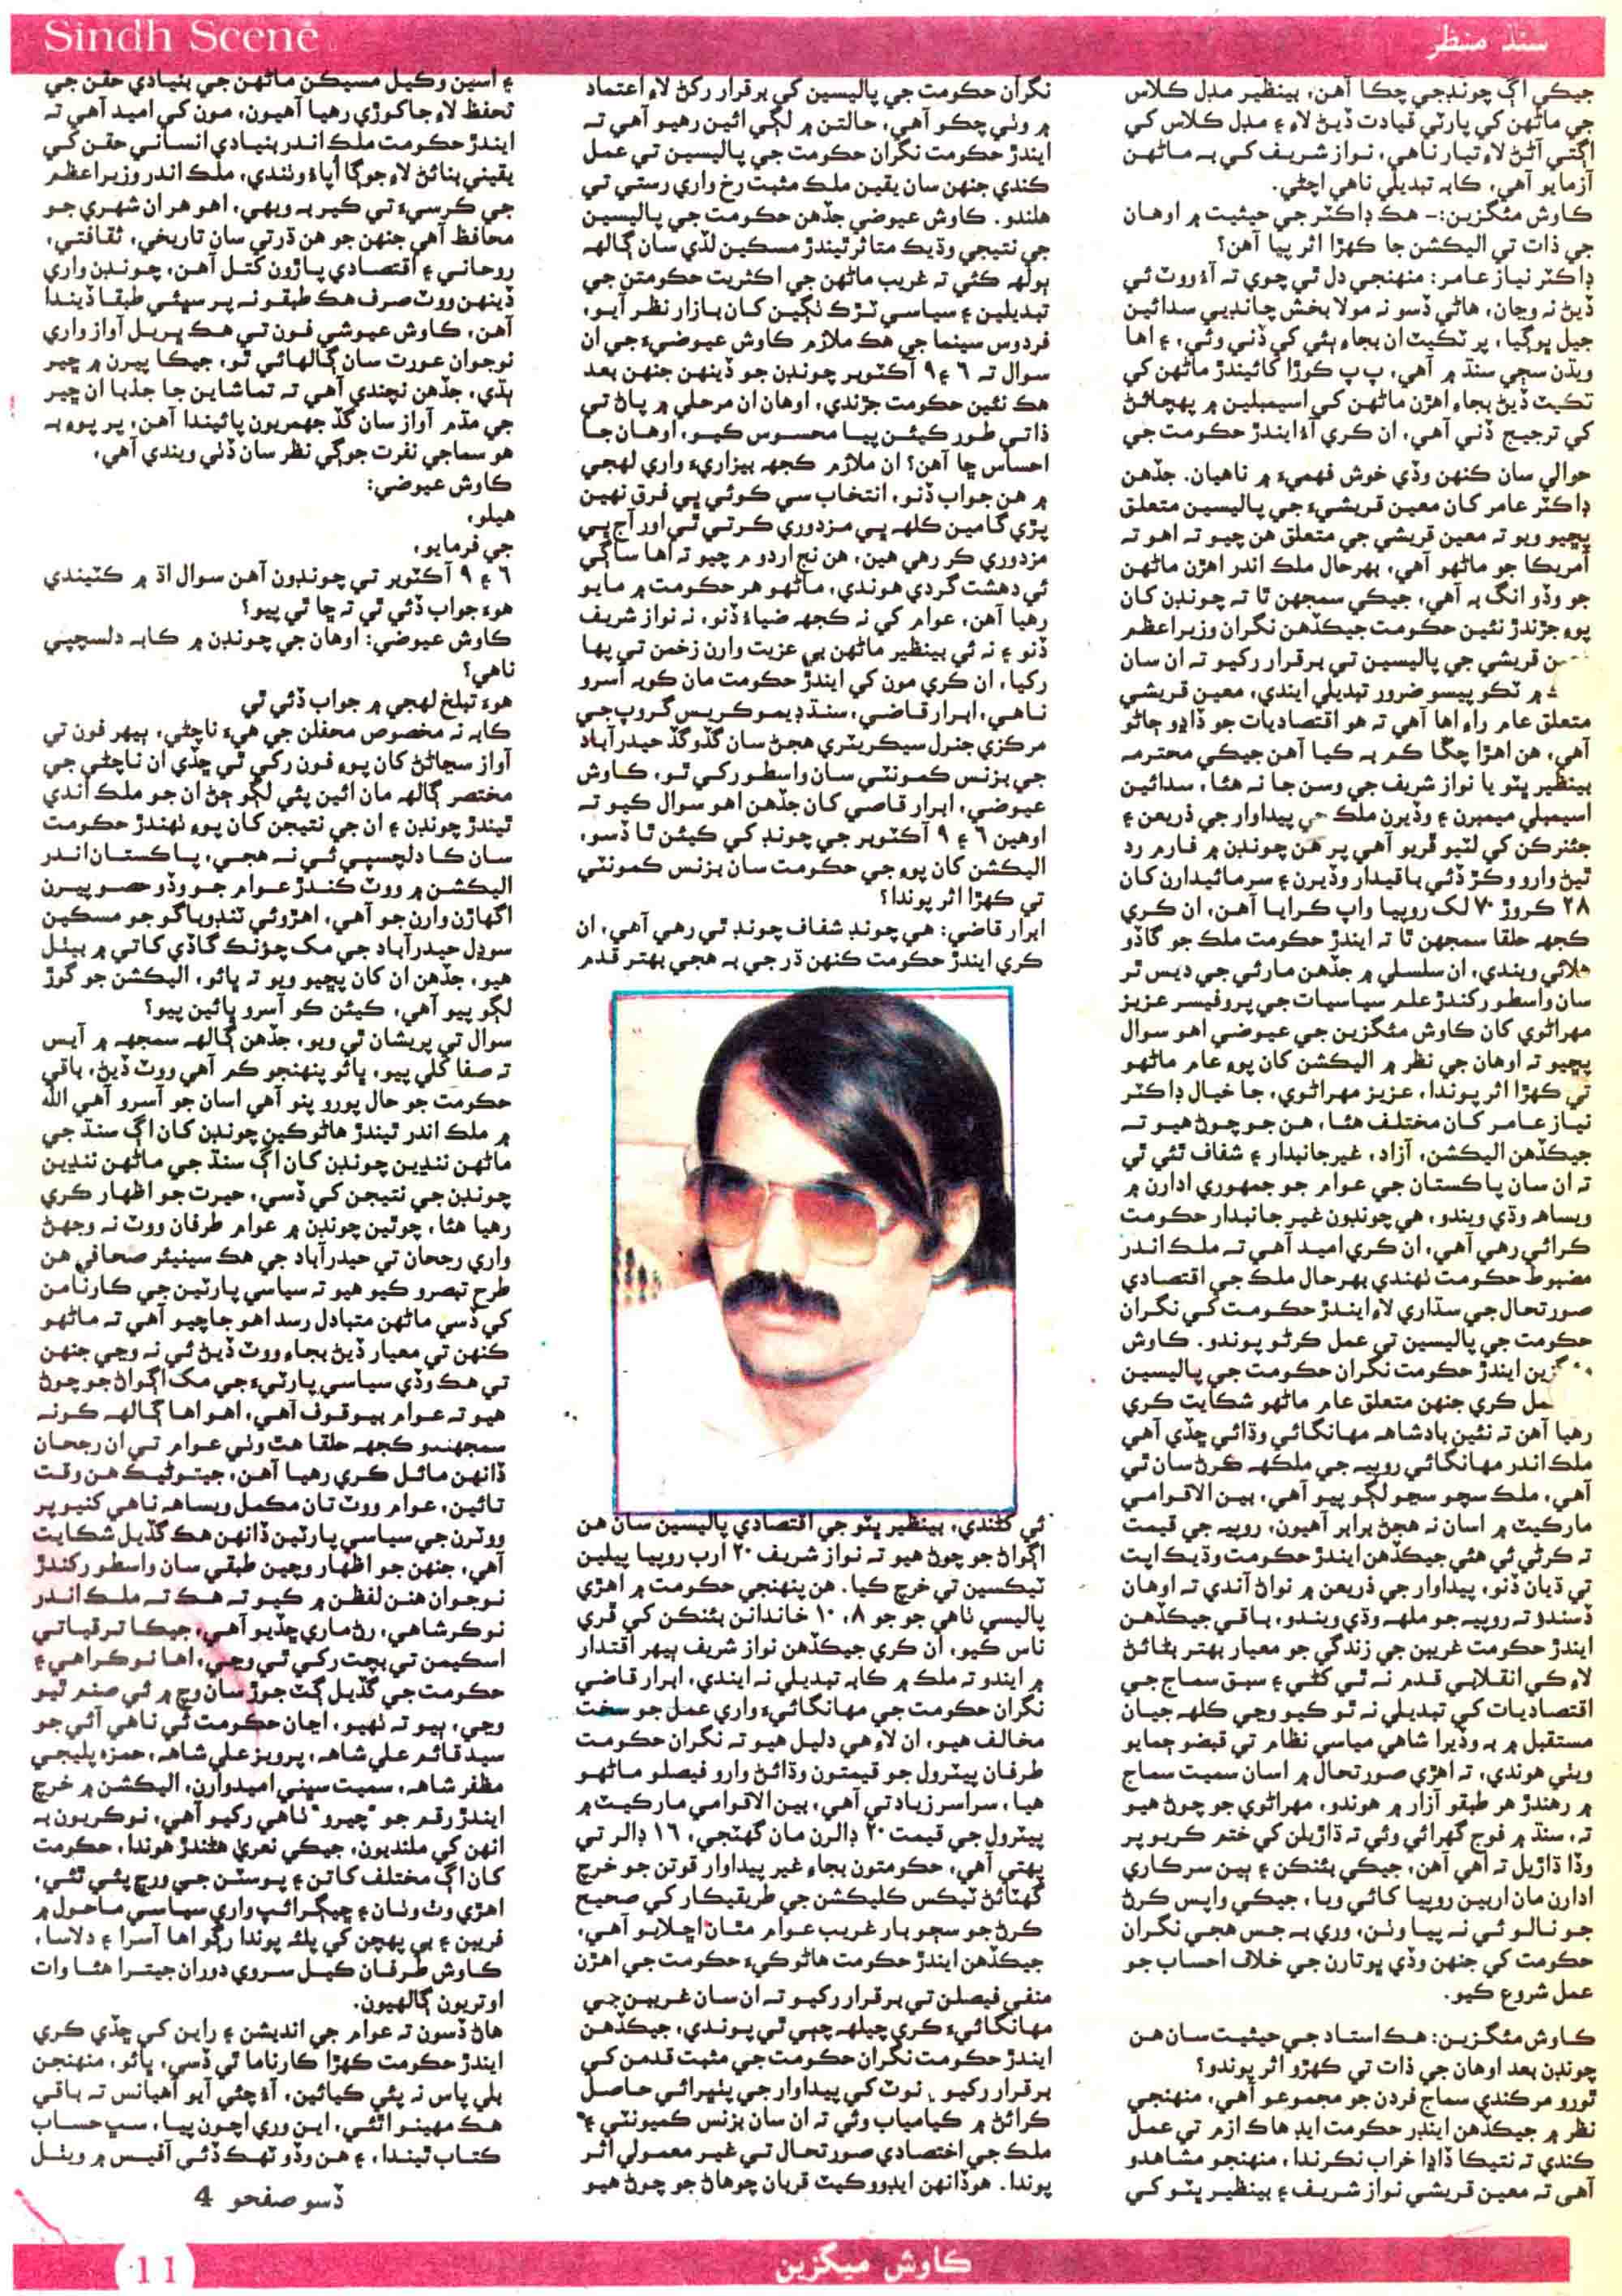 Sindh Scene
سنڌ منظر
جيڪي اڳ چونڊجي چڪا آهن، بينظير مڊل ڪلاس
جي ماڻهن کي پارٽي قيادت ڏيڻ لاءِ ۽ مڊل ڪلاس کي
اڳتي آڻڻ لاءِ تيار ناهي، نواز شريف کي به ماڻهن
آزمايو آهي، ڪابه تبديلي ناهي اچڻي.
ڪاوش مئگزين:- هڪ ڊاڪٽر جي حيثيت ۾ اوهان
جي ذات تي اليڪشن جا ڪهڙا اثر پيا آهن؟
ڊاڪٽر نياز عامر: منهنجي دل ٿي چوي ته آءٌ ووٽ ئي
ڏيڻ نه وڃان، هاڻي ڏسو نه مولا بخش چانڊيي سدائين
جيل ڀوڳيا، پر ٽڪيٽ ان بجاءِ ٻئي کي ڏني وئي، ۽ اها
ويڌن سڄي سنڌ ۾ آهي، پ پ ڪوڙا کائيندڙ ماڻهن کي
ٽڪيٽ ڏيڻ بجاءِ اهڙن ماڻهن کي اسيمبلين ۾ پهچائڻ
کي ترجيح ڏني آهي، ان ڪري آءٌ ايندڙ حڪومت جي
حوالي سان ڪنهن وڏي خوش فهميءَ ۾ ناهيان. جڏهن
ڊاڪٽر عامر کان معين قريشيءَ جي پاليسين متعلق
پڇيو ويو ته معين قريشي جي متعلق هن چيو ته اهو ته
آمريڪا جو ماڻهو آهي، بهرحال ملڪ اندر اهڙن ماڻهن
جو وڏو انگ به آهي، جيڪي سمجهن ٿا ته چونڊن کان
پوءِ جڙندڙ نئين حڪومت جيڪڏهن نگران وزيراعظم
قريشي جي پاليسين تي برقرار رکيو ته ان سان
۾ ٽڪو پيسو ضرور تبديلي ايندي، معين قريشي
متعلق عام راءِ اها آهي ته هو اقتصاديات جو ڏاڍو ڄاڻو
آهي، هن اهڙا چڱا ڪم به ڪيا آهن جيڪي محترمه
بينظير ڀٽو يا نواز شريف جي وس جا نه هئا، سدائين
اسيمبلي ميمبرن ۽ وڏيرن ملڪ جي پيداوار جي ذريعن ۽
بئنڪن کي لٽيو ڦريو آهي پر هن چونڊن ۾ فارم رد
ٿيڻ وارو وڪڙ ڏئي باقيدار وڏيرن ۽ سرمائيدارن کان
٢٨ ڪروڙ ٧٠ لک روپيا واپ ڪرايا آهن، ان ڪري
ڪجهه حلقا سمجهن ٿا ته ايندڙ حڪومت ملڪ جو گاڏو
هلائي ويندي، ان سلسلي ۾ جڏهن مارئي جي ديس ٿر
سان واسطو رکندڙ علم سياسيات جي پروفيسر عزيز
مهراڻوي کان ڪاوش مئگزين جي عيوضي اهو سوال
پڇيو ته اوهان جي نظر ۾ اليڪشن کان پوءِ عام ماڻهو
تي ڪهڙا اثر پوندا، عزيز مهراڻوي، جا خيال ڊاڪٽر
نياز عامر کان مختلف هئا، هن جو چوڻ هيو ته
جيڪڏهن اليڪشن، آزاد، غيرجانبدار ۽ شفاف ٿئي ٿي
ته ان سان پاڪستان جي عوام جو جمهوري ادارن ۾
ويساهه وڌي ويندو، هي چونڊون غير جانبدار حڪومت
ڪرائي رهي آهي، ان ڪري اميد آهي ته ملڪ اندر
مضبوط حڪومت ٺهندي بهرحال ملڪ جي اقتصادي
صورتحال جي سڌاري لاءِ ايندڙ حڪومت کي نگران
حڪومت جي پاليسين تي عمل ڪرڻو پوندو. ڪاوش
گزين ايندڙ حڪومت نگران حڪومت جي پاليسين
عمل ڪري جنهن متعلق عام ماڻهو شڪايت ڪري
رهيا آهن ته نئين بادشاهه مهانگائي وڌائي ڇڏي آهي
ملڪ اندر مهانگائي روپيه جي ملڪهه ڪرڻ سان ٿي
آهي، ملڪ سڄو سڄو لڳو پيو آهي، بين الاقوامي
مارڪيٽ ۾ اسان نه هجڻ برابر آهيون، روپيه جي قيمت
ته ڪرڻي ئي هئي جيڪڏهن ايندڙ حڪومت وڌيڪ اپت
تي ڌيان ڏنو، پيداوار جي ذريعن ۾ نواڻ آندي ته اوهان
ڏسندؤ ته روپيه جو ملهه وڌي ويندو، باقي جيڪڏهن
ايندڙ حڪومت غريبن جي زندگي جو معيار بهتر بڻائڻ
لاءِ ڪي انقلابي قدم نه ٿي کڻي ۽ سبق سماج جي
اقتصاديات کي تبديلي نه ٿو ڪيو وڃي ڪلهه جيان
مستقبل ۾ به وڏيرا شاهي سياسي نظام تي قبضو ڄمايو
ويٺي هوندي، ته اهڙي صورتحال ۾ اسان سميت سماج
۾ رهندڙ هر طبقو آزار ۾ هوندو، مهراڻوي جو چوڻ هيو
ته، سنڌ ۾ فوج گهرائي وئي ته ڌاڙيلن کي ختم ڪريو پر
وڏا ڌاڙيل ته اهي آهن، جيڪي بئنڪن ۽ ٻين سرڪاري
ادارن مان اربين روپيا کائي ويا، جيڪي واپس ڪرڻ
جو نالو ئي نه پيا وٺن، وري به جس هجي نگران
حڪومت کي جنهن وڏي ڀوتارن جي خلاف احساب جو
عمل شروع ڪيو.
ڪاوش مئگزين: هڪ استاد جي حيثيت سان هن
چونڊن بعد اوهان جي ذات تي ڪهڙو اثر پوندو؟
ٿورو مرڪندي سماج فردن جو مجموعو آهي، منهنجي
نظر ۾ جيڪڏهن ايندڙ حڪومت ايڊهاڪ ازم تي عمل
ڪندي ته نتيڪا ڏاڍا خراب نڪرندا، منهنجو مشاهدو
آهي ته معين قريشي نواز شريف ۽ بينظير ڀٽو کي
نگران حڪومت جي پاليسين کي برقرار رکڻ لاءِ اعتماد
۾ وٺي چڪو آهي، حالتن ۾ لڳي ائين رهيو آهي ته
ايندڙ حڪومت نگران حڪومت جي پاليسين تي عمل
ڪندي جنهن سان يقين ملڪ مثبت رخ واري رستي تي
هلندو. ڪاوش عيوضي جڏهن حڪومت جي پاليسين
جي نتيجي وڌيڪ متاثر ٿيندڙ مسڪين لڏي سان ڳالهه
ٻولهه ڪئي ته غريب ماڻهن جي اڪثريت حڪومتن جي
تبديلين ۽ سياسي ٽڙڪ ٺڳين کان بازار نظر آيو،
فردوس سينما جي هڪ ملازم ڪاوش عيوضيءَ جي ان
سوال ته ٦ ۽ ٩ آڪٽوبر چونڊن جو ڏينهن جنهن بعد
هڪ نئين حڪومت جڙندي، اوهان ان مرحلي ۾ پاڻ تي
ذاتي طور ڪيئن پيا محسوس ڪيو، اوهان جا
احساس ڇا آهن؟ ان ملازم ڪجهه بيزاريءَ واري لهجي
۾ هن جواب ڏنو، انتخاب سي ڪوئي ڀي فرق نهين
پڙي گا مين ڪلهه ڀي مزدوري ڪرتي ٿي اور آج ڀي
مزدوري ڪر رهي هين، هن نج اردو ۾ چيو ته اها ساڳي
ئي دهشت گردي هوندي، ماڻهو هر حڪومت ۾ مايو
رهيا آهن، عوام کي نه ڪجهه ضياءَ ڏنو، نه نواز شريف
ڏنو ۽ نه ئي بينظير ماڻهن بي عزيت وارن زخمن تي پها
رکيا، ان ڪري مون کي ايندڙ حڪومت مان ڪوبه آسرو
ناهي، ابرار قاضي، سنڌ ڊيموڪريس گروپ جي
مرڪزي جنرل سيڪريٽري هجڻ سان گڏوگڏ حيدرآباد
جي بزنس ڪمونٽي سان واسطو رکي ٿو، ڪاوش
عيوضي، ابرار قاضي کان جڏهن اهو سوال ڪيو ته
اوهين ٦ ۽ ٩ آڪٽوبر جي چونڊ کي ڪيئن ٿا ڏسو،
اليڪشن کان پوءِ جي حڪومت سان بزنس ڪمونٽي
تي ڪهڙا اثر پوندا؟
ابرار قاضي: هي چونڊ شفاف چونڊ ٿي رهي آهي، ان
ڪري ايندڙ حڪومت ڪنهن ڌر جي به هجي بهتر قدم
ئي کڻندي، بينظير ڀٽو جي اقتصادي پاليسين سان هن
اڳواڻ جو چوڻ هيو ته نواز شريف ٢٠ ارب روپيا پيلين
ٽيڪسين تي خرچ ڪيا. هن پنهنجي حڪومت ۾ اهڙي
پاليسي ٺاهي جو جو ٨، ١٠ خاندانن بئنڪن کي ڦري
ناس ڪيو، ان ڪري جيڪڏهن نواز شريف ٻيهر اقتدار
۾ ايندو ته ملڪ ۾ ڪابه تبديلي نه ايندي، ابرار قاضي
نگران حڪومت جي مهانگائيءَ واري عمل جو سخت
مخالف هيو، ان لاءِ هي دليل هيو ته نگران حڪومت
طرفان پيٽرول جو قيمتون وڌائڻ وارو فيصلو ماڻهو
هيا، سراسر زيادتي آهي، بين الاقوامي مارڪيٽ ۾
پيٽرول جي قيمت ٢٠ ڊالرن مان گهٽجي، ١٦ ڊالر تي
پهتي آهي، حڪومتون بجاءِ غير پيداوار قوتن جو خرچ
گهٽائڻ ٽيڪس ڪليڪشن جي طريقيڪار کي صحيح
ڪرڻ جو سڄو بار غريب عوام مٿان اڇلايو آهي،
جيڪڏهن ايندڙ حڪومت هاڻوڪيءَ حڪومت جي اهڙن
منفي فيصلن تي برقرار رکيو ته ان سان غريبن جي
مهانگائيءَ ڪري چيلهه چٻي ٿي پوندي، جيڪڏهن
ايندڙ حڪومت نگران حڪومت جي مثبت قدمن کي
برقرار رکيو. نوٽ ڪي پيداوار جي پٺڀرائي حاصل
ڪرائڻ ۾ ڪامياب وئي ته ان سان بزنس ڪميونٽي ۽
ملڪ جي اختصادي صورتحال تي غير معمولي اثر
پوندا. هوڏانهن ايڊووڪيٽ قربان چوهاڻ جو چوڻ هيو
۽ اسين وڪيل مسڪين ماڻهن جي بنيادي حقن جي
تحفظ لاءِ جاکوڙي رهيا آهيون، مون کي اميد آهي ته
ايندڙ حڪومت ملڪ اندر بنيادي انساني حقن کي
يقيني بنائڻ لاءِ جوڳا اُپاءَ وٺندي، ملڪ اندر وزيراعظم
جي ڪرسيءَ تي ڪير به ويهي، اهو هر ان شهري جو
محافظ آهي جنهن جو هن ڌرتي سان تاريخي، ثقافتي،
روحاني ۽ اقتصادي پاڙون کتل آهن، چونڊن واري
ڏينهن ووٽ صرف هڪ طبقو نه پر سڀئي طبقا ڏيندا
آهن، ڪاوش عيوضي فون تي هڪ ڀريل آواز واري
نوجوان عورت سان ڳالهائي ٿو، جيڪا پيرن ۾ ڇير
ٻڌي، جڏهن نچندي آهي ته تماشاين جا جذبا ان ڇير
جي مڌم آواز سان گڏ جهمريون پائيندا آهن، پر پوءِ به
هو سماجي نفرت جوڳي نظر سان ڏٺي ويندي آهي،
ڪاوش عيوضي:
هيلو،
جي فرمايو،
٦ ۽ ٩ آڪٽوبر تي چونڊون آهن سوال اڌ ۾ ڪٽيندي
هوءَ جواب ڏئي ٿي ته ڇا ٿي پيو؟
ڪاوش عيوضي: اوهان جي چونڊن ۾ ڪابه دلسچپي
ناهي؟
هوءَ تبلخ لهجي ۾ جواب ڏئي ٿي
ڪابه نه مخصوص محفلن جي هيءَ ناچڻي، ٻيهر فون تي
آواز سڃاڻڻ کان پوءِ فون رکي ٿي ڇڏي ان ناچڻي جي
مختصر ڳالهه مان ائين پئي لڳو ڄڻ ان جو ملڪ اندي
ٿيندڙ چونڊن ۽ ان جي نتيجن کان پوءِ ٺهندڙ حڪومت
سان ڪا دلچسپي ئي نه هجي، پاڪستان اندر
اليڪشن ۾ ووٽ ڪندڙ عوام جو وڏو حصو پيرن
اگهاڙن وارن جو آهي، اهڙوئي ٽنڊوباگو جو مسڪين
سوڍل حيدرآباد جي مک چؤنڪ گاڏي کاتي ۾ بيٺل
هيو، جڏهن ان کان پڇيو ويو ته ڀائو، اليڪشن جو گوڙ
لڳو پيو آهي، ڪيئن ڪو آسرو پائين پيو؟
سوال تي پريشان ٿي ويو، جڏهن ڳالهه سمجهه ۾ آيس
ته صفا کلي پيو، ڀائو پنهنجو ڪم آهي ووٽ ڏيڻ، باقي
حڪومت جو حال پورو پنو آهي اسان جو آسرو آهي الله
۾ ملڪ اندر ٿيندڙ هاڻوڪين چونڊن کان اڳ سنڌ جي
ماڻهن ننڍين چونڊن کان اڳ سنڌ جي ماڻهن ننڍين
چونڊن جي نتيجن کي ڏسي، حيرت جو اظهار ڪري
رهيا هئا، چوٿين چونڊن ۾ عوام طرفان ووٽ نه وجهڻ
واري رجحان تي حيدرآباد جي هڪ سينيئر صحافي هن
طرح تبصرو ڪيو هيو ته سياسي پارٽين جي ڪارنامن
کي ڏسي ماڻهن متبادل رسد اهو جاچيو آهي ته ماڻهو
ڪنهن تي معيار ڏيڻ بجاءِ ووٽ ڏيڻ ئي نه وڃي جنهن
تي هڪ وڏي سياسي پارٽيءَ جي مک اڳواڻ جو چوڻ
هيو ته عوام بيوقوف آهي، اهو اها ڳالهه ڪونه
سمجهندو ڪجهه حلقا هٿ وٺي عوام تي ان رجحان
ڏانهن مائل ڪري رهيا آهن، جيتوڻيڪ هن وقت
تائين، عوام ووٽ تان مڪمل ويساهه ناهي کنيو پر
ووٽرن جي سياسي پارٽين ڏانهن هڪ گڏيل شڪايت
آهي، جنهن جو اظهار وچين طبقي سان واسطو رکندڙ
نوجوان هنن لفظن ۾ ڪيو ته هڪ ته ملڪ اندر
نوڪر شاهي، رڻ ماري ڇڏيو آهي، جيڪا ترقياتي
اسڪيمن تي بچت رکي ٿي وڃي، اها نوڪراهي ۽
حڪومت جي گڏيل ڳٺ جوڙ سان وچ ۾ ئي صنم ٿيو
وڃي، ٻيو ته ٺهيو، اڃان حڪومت ئي ناهي آئي جو
سيد قائم علي شاهه، پرويز علي شاهه، حمزه پليجي
مظفر شاهه، سميت سڀني اميدوارن، اليڪشن ۾ خرچ
ايندڙ رقم جو "چيرو" ٺاهي رکيو آهي، نوڪريون به
انهن کي ملنديون، جيڪي نعري هڻندڙ هوندا، حڪومت
کان اڳ مختلف کاتن ۽ پوسٽن جي ورڇ پئي ٿئي،
اهڙي وٺ وٺان ۽ ڇيڳرائپ واري سياسي ماحول ۾
غريبن ۽ بي پهچن کي پلئه پوندا رڳو اها آسرا ۽ دلاسا،
ڪاوش طرفان ڪيل سروي دوران جيترا هئا وات
اوتريون ڳالهيون.
هاڻ ڏسون ته عوام جي انديشن ۽ راين کي ڇڏي ڪري
ايندڙ حڪومت ڪهڙا ڪارناما ٿي ڏسي، ڀائو، منهنجن
بلي پاس نه پئي ڪيائين، آءٌ چئي آيو آهيانس ته باقي
هڪ مهينو اٿئي، اين وري اچون پيا، سڀ حساب
ڪتاب ٿيندا، ۽ هن وڏو ٽهڪ ڏئي آفيس ۾ ويٺل
ڏسو صفحو 4
ڪاوش ميگزين
11